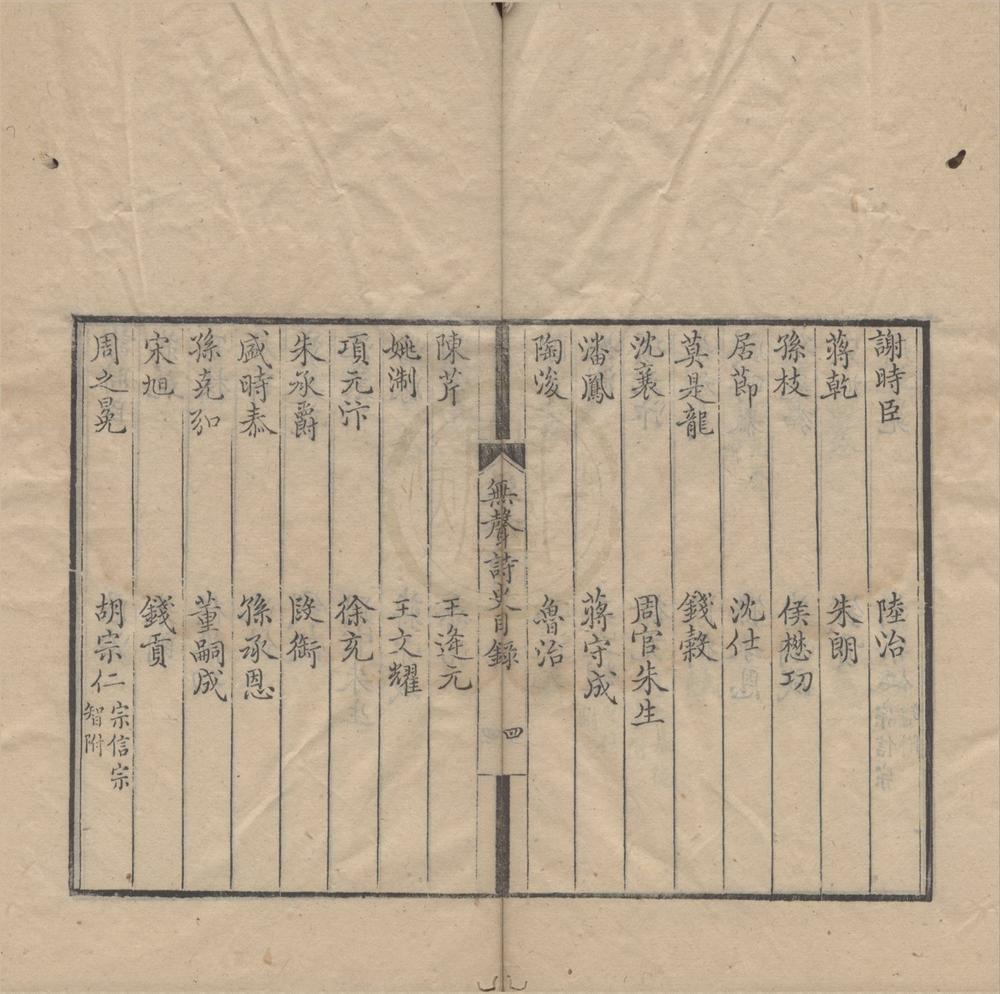 謝時臣 陸治
蔣乾 朱朗
孫枝 侯懋功
居節 沈仕
莫是龍 錢穀
沈襄 周官朱生
潘鳳 蔣守成
陶浚 魯治
無聲詩史目錄 四
陳芹 王逢元
姚淛 王文耀
項元汴 徐充
朱承爵 段衙
盛時泰 孫承恩
孫克弘 董嗣成
宋旭 錢貢
周之冕 胡宗仁宗信宗智附